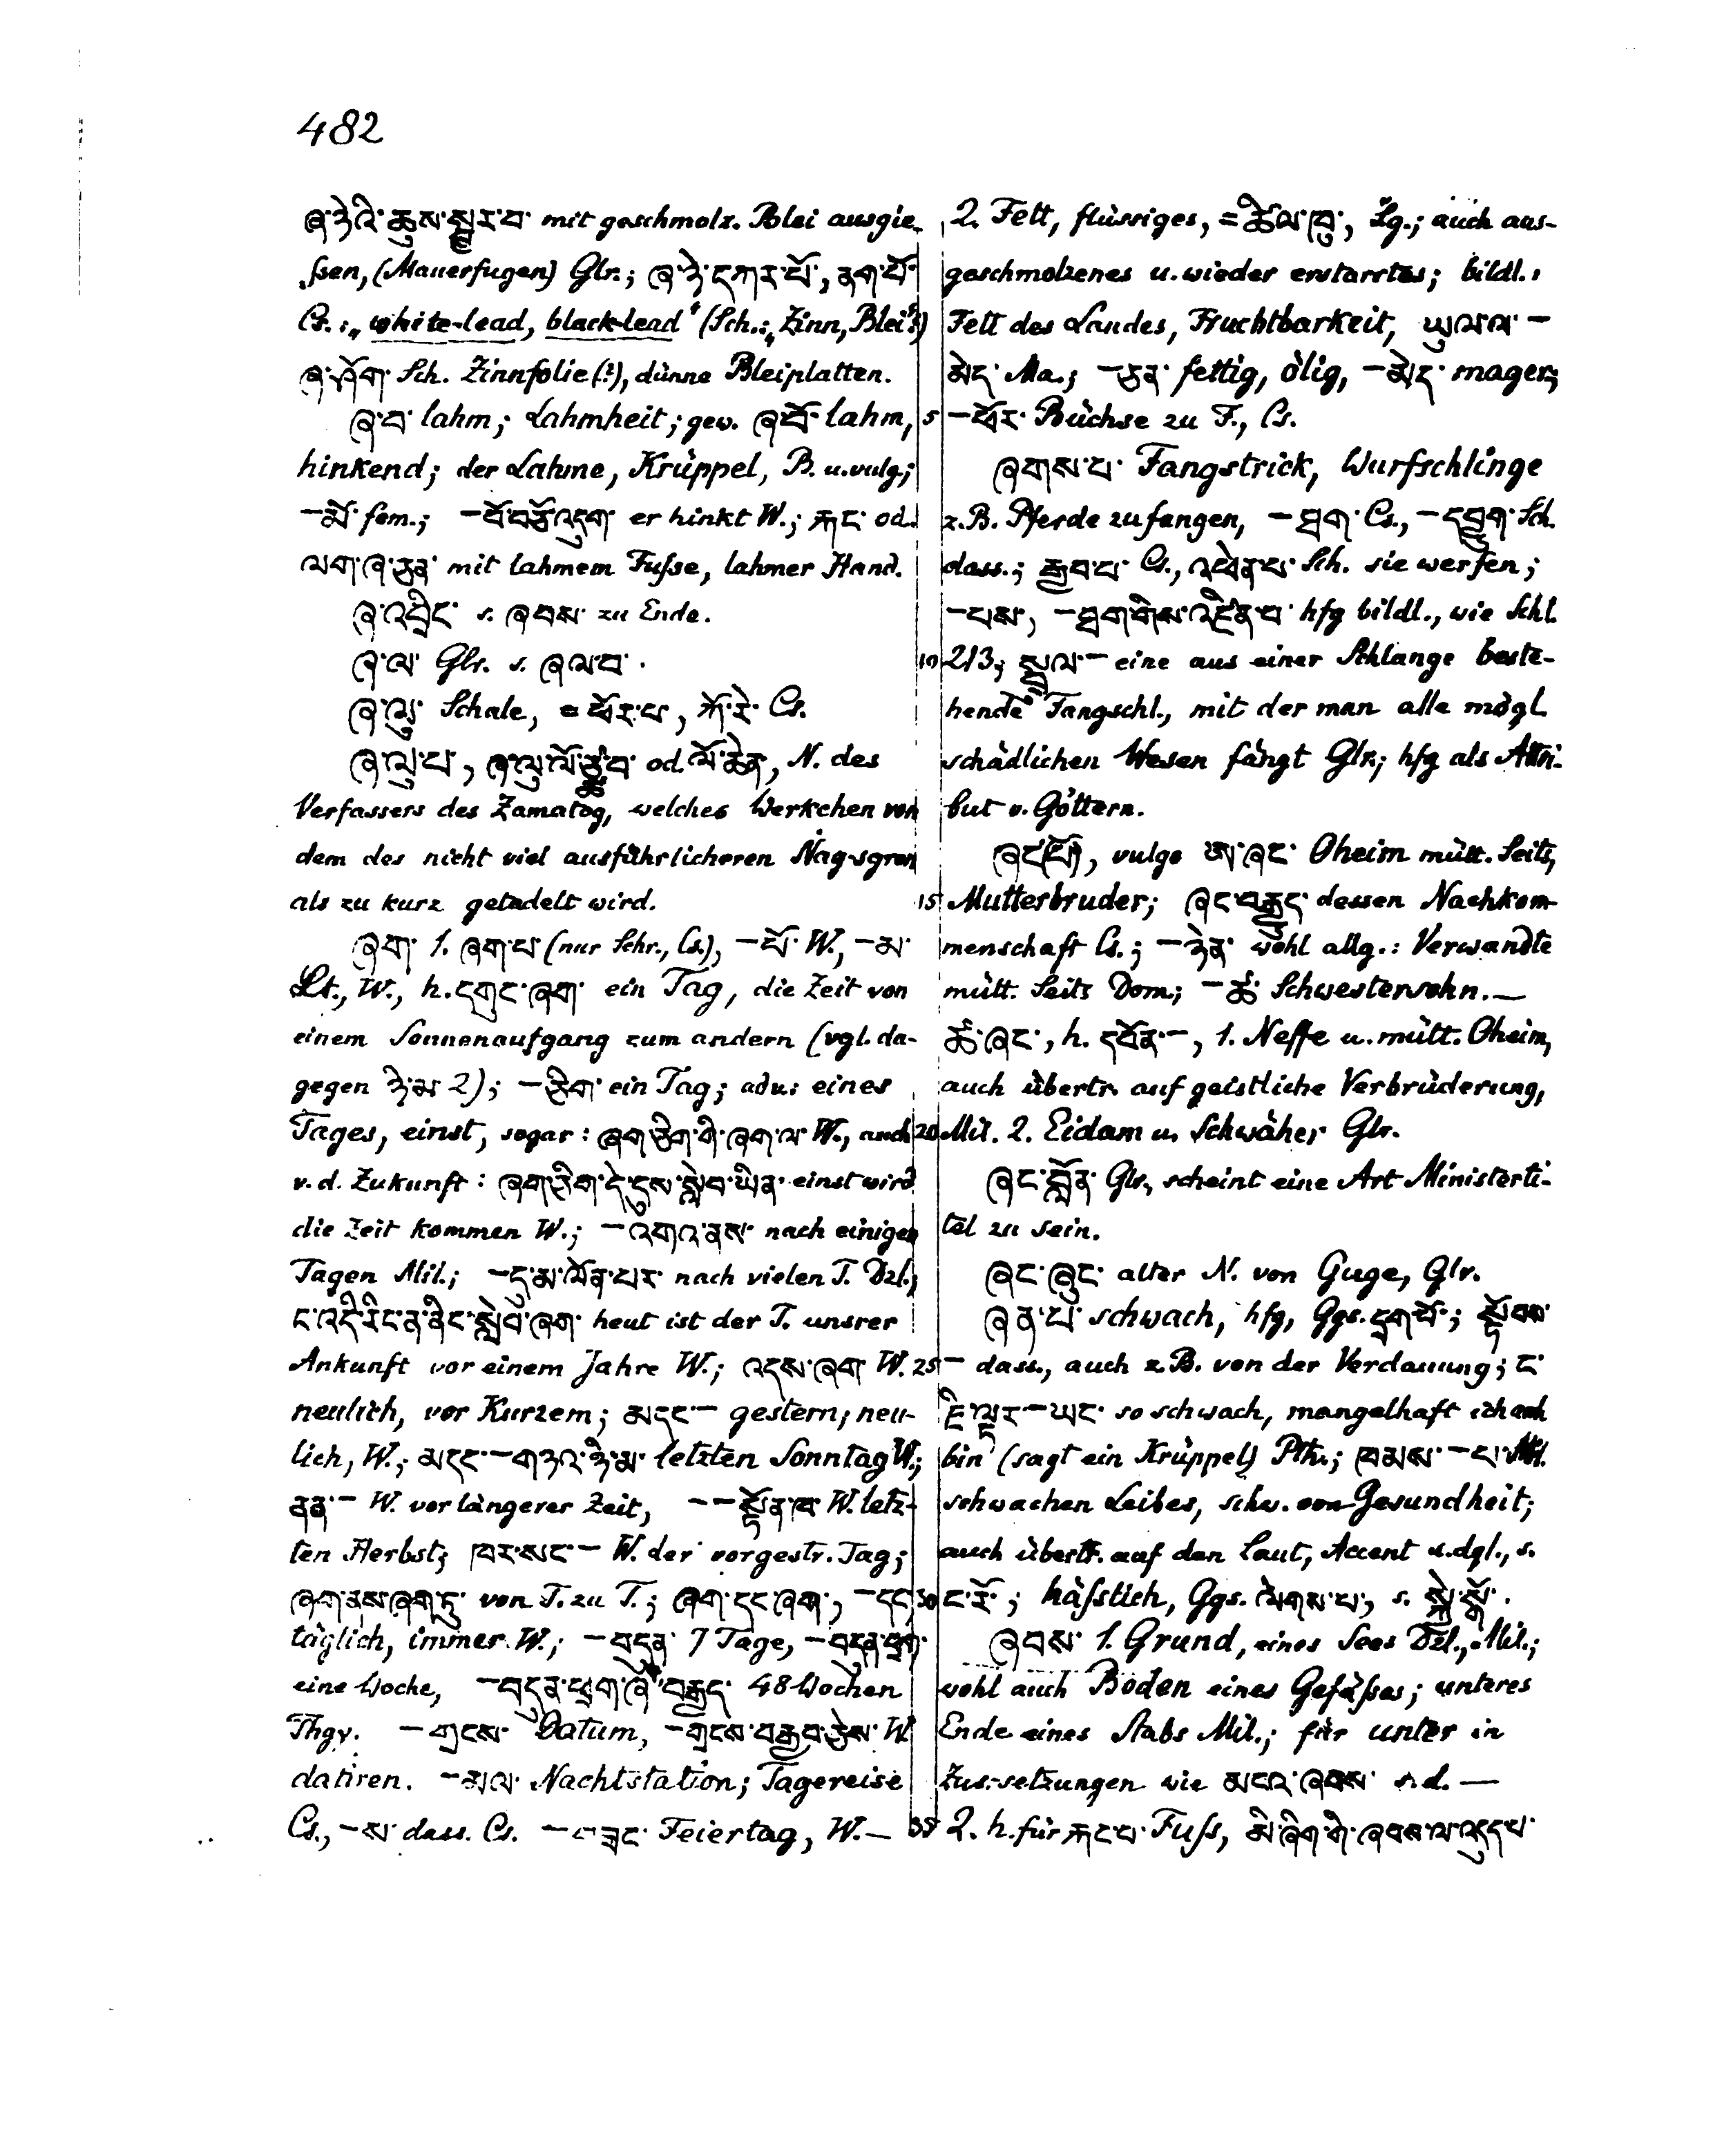 482
ཞ་ཉེའི་ཆུས་སྦྱར་བ་ mit geschmolz. Blei ausgie-
ssen, (Mauerfugen) Glr.; ཞ་ཉེ་དཀར་པོ་, ནག་པོ་
Cs.: „white-lead, black-lead“ (Sch.: „Zinn, Blei“?)
ཞ་ཤོག་ Sch. Zinnfolie (?), dünne Bleiplatten.
ཞ་བ་ lahm; Lahmheit; gew. ཞ་བོ་ lahm,
hinkend; der Lahme, Krüppel, B. u. vulg.;
–མོ་ fem.; –བོ་བཅོ་འདུག་ er hinkt W.; རྐང་ od.
ལག་ཞ་ཅན་ mit lahmem Fusse, lahmer Hand.
ཞ་འབྲིང་ s. ཞབས་ zu Ende.
ཞ་ལ་ Glr. s. ཞལ་བ་.
ཞ་ལུ་ Schale, = ཕོར་པ་, ཀོ་རེ་ Cs.
ཞ་ལུ་པ་, ཞ་ལུ་ལོ་ཙཱ་བ་ od. ལོ་ཆེན་, N. des
Verfassers des Zamatog, welches Werkchen von
dem des nicht viel ausführlicheren Ṅag-sgron
als zu kurz getadelt wird.
ཞག་ 1. ཞག་པ་ (nur Schr., Cs.), –པོ་ W., –མ་
Lt., W., h. དགུང་ཞག་ ein Tag, die Zeit von
einem Sonnenaufgang zum andern (vgl. da-
gegen ཉི་མ་ 2); –ཅིག་ ein Tag; adv.: eines
Tages, einst, sogar: ཞག་ཅིག་གི་ཞག་ལ་ W., auch
v. d. Zukunft: ཞག་ཅིག་དེ་དུས་སླེབ་ཡིན་ einst wird
die Zeit kommen W.; –འགའ་ནས་ nach einigen
Tagen Mil.; –དུ་མ་ལོན་པར་ nach vielen T. Dzl.;
ང་འདི་རིང་ན་ནིང་སླེབ་ཞག་ heut ist der T. unsrer
Ankunft vor einem Jahre W.; འདས་ཞག་ W.
neulich, vor Kurzem; མདང་– gestern; neu-
lich, W.; མདང་–གཟའ་ཉི་མ་ letzten Sonntag W.;
ནན་– W. vor längerer Zeit, ––སྟོན་ཁ་ W. letz-
ten Herbst; ཁར་སང་– W. der vorgestr. Tag;
ཞག་ནས་ཞག་ཏུ་ von T. zu T.; ཞག་དང་ཞག་, –དང་
täglich, immer W.; –བདུན་ 7 Tage, –བདུན་ཕྲག་
eine Woche, –བདུན་ཕྲག་ཞེ་བརྒྱད་ 48 Wochen
Thgy. –གྲངས་ Datum, –གྲངས་བརྒྱབ་ཅེས་ W.
datiren. –མལ་ Nachtstation; Tagereise
Cs., –ས་ dass. Cs. –བཟང་ Feiertag, W. —
2. Fett, flüssiges, = ཚིལ་ཁུ་, Lg.; auch aus-
geschmolzenes u. wieder erstarrtes; bildl.:
Fett des Landes, Fruchtbarkeit, ཡུལ་ལ་–
མེད་ Ma.; –ཅན་ fettig, ölig, –མེད་ mager;
5 –ཕོར་ Büchse zu F., Cs.
ཞགས་པ་ Fangstrick, Wurfschlinge
z. B. Pferde zu fangen, –ཐག་ Cs., –དབྱུག་ Sch.
dass.; རྒྱབ་པ་ Cs., འཕེན་པ་ Sch. sie werfen;
–པས་, –ཐག་གིས་འཛིན་པ་ hfg bildl., wie Schl.
10 213; སྦྲུལ་– eine aus einer Schlange beste-
hende Fangschl., mit der man alle mögl.
schädlichen Wesen fängt Glr.; hfg als Attri-
but v. Göttern.
ཞང་(པོ་), vulgo ཨ་ཞང་ Oheim mütt. Seits,
15 Mutterbruder; ཞང་བརྒྱུད་ dessen Nachkom-
menschaft Cs.; –ཉེན་ wohl allg.: Verwandte
mütt. Seits Dom.; –ཚ་ Schwestersohn. —
ཚ་ཞང་, h. དབོན་–, 1. Neffe u. mütt. Oheim,
auch übertr. auf geistliche Verbrüderung,
20 Mil. 2. Eidam u. Schwäher Glr.
ཞང་བློན་ Glr., scheint eine Art Ministerti-
tel zu sein.
ཞང་ཞུང་ alter N. von Guge, Glr.
ཞན་པ་ schwach, hfg, Ggs. དྲག་པོ་; སྟོབས་
25 – dass., auch z. B. von der Verdauung; ང་
ཇི་ལྟར་–ཡང་ so schwach, mangelhaft ich auch
bin (sagt ein Krüppel) Pth.; ཁམས་–པ་ Mil.
schwachen Leibes, schw. von Gesundheit;
auch übertr. auf den Laut, Accent u. dgl., s.
30 ང་རོ་; hässlich, Ggs. ལེགས་པ་, s. སྐྱེ་སྒོ་.
ཞབས་ 1. Grund, eines Sees Dzl., Mil.;
wohl auch Boden eines Gefässes; unteres
Ende eines Stabs Mil.; für unter in
Zus.-setzungen wie མངའ་ཞབས་ s. d. —
35 2. h. für རྐང་པ་ Fuss, མི་ཞིག་གི་ཞབས་ལ་འདུད་པ་